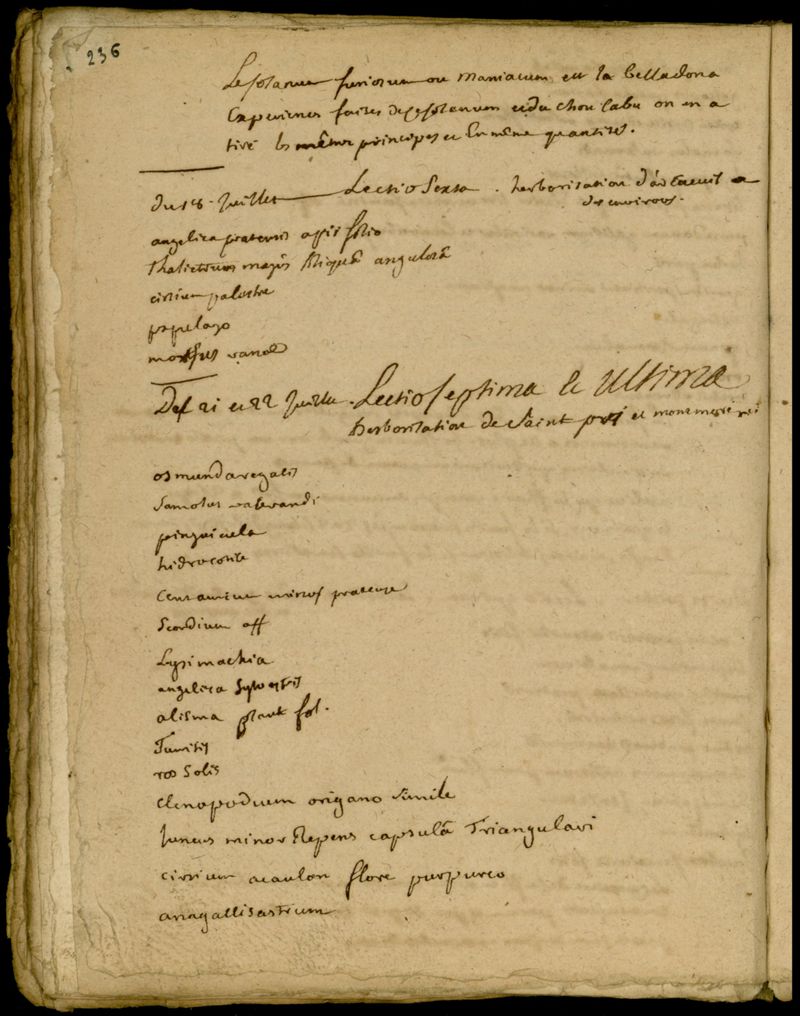 236
Le solanum furiosum ou maniacum est la belladona
Experiences faites de ce solanum et du chou cabu on en a
tiré les mêmes principes et En même quantités.
du 18 Juillet Lectio Sexta . herborisation d'
des environs.
angelica pratensis apii folio
thalictrum majus siliquâ angulosâ
cirsium palustre
populago
morsus ranae
Des 21 et 22 Juillet . Lectio septima & ultima
herborisation de Saint et montmorenci
osmunda regalis
Samolus valerandi
pinguicula
hidrocotile
Centaurium minus
Scordium off
Lysimachia
angelica sylvestris
alisma plant fol.
ros Solis
clenopodium origano simile
Juncus minor Repens capsulâ Triangulari
cirsium acaulon flore purpureo
anagallisastrum